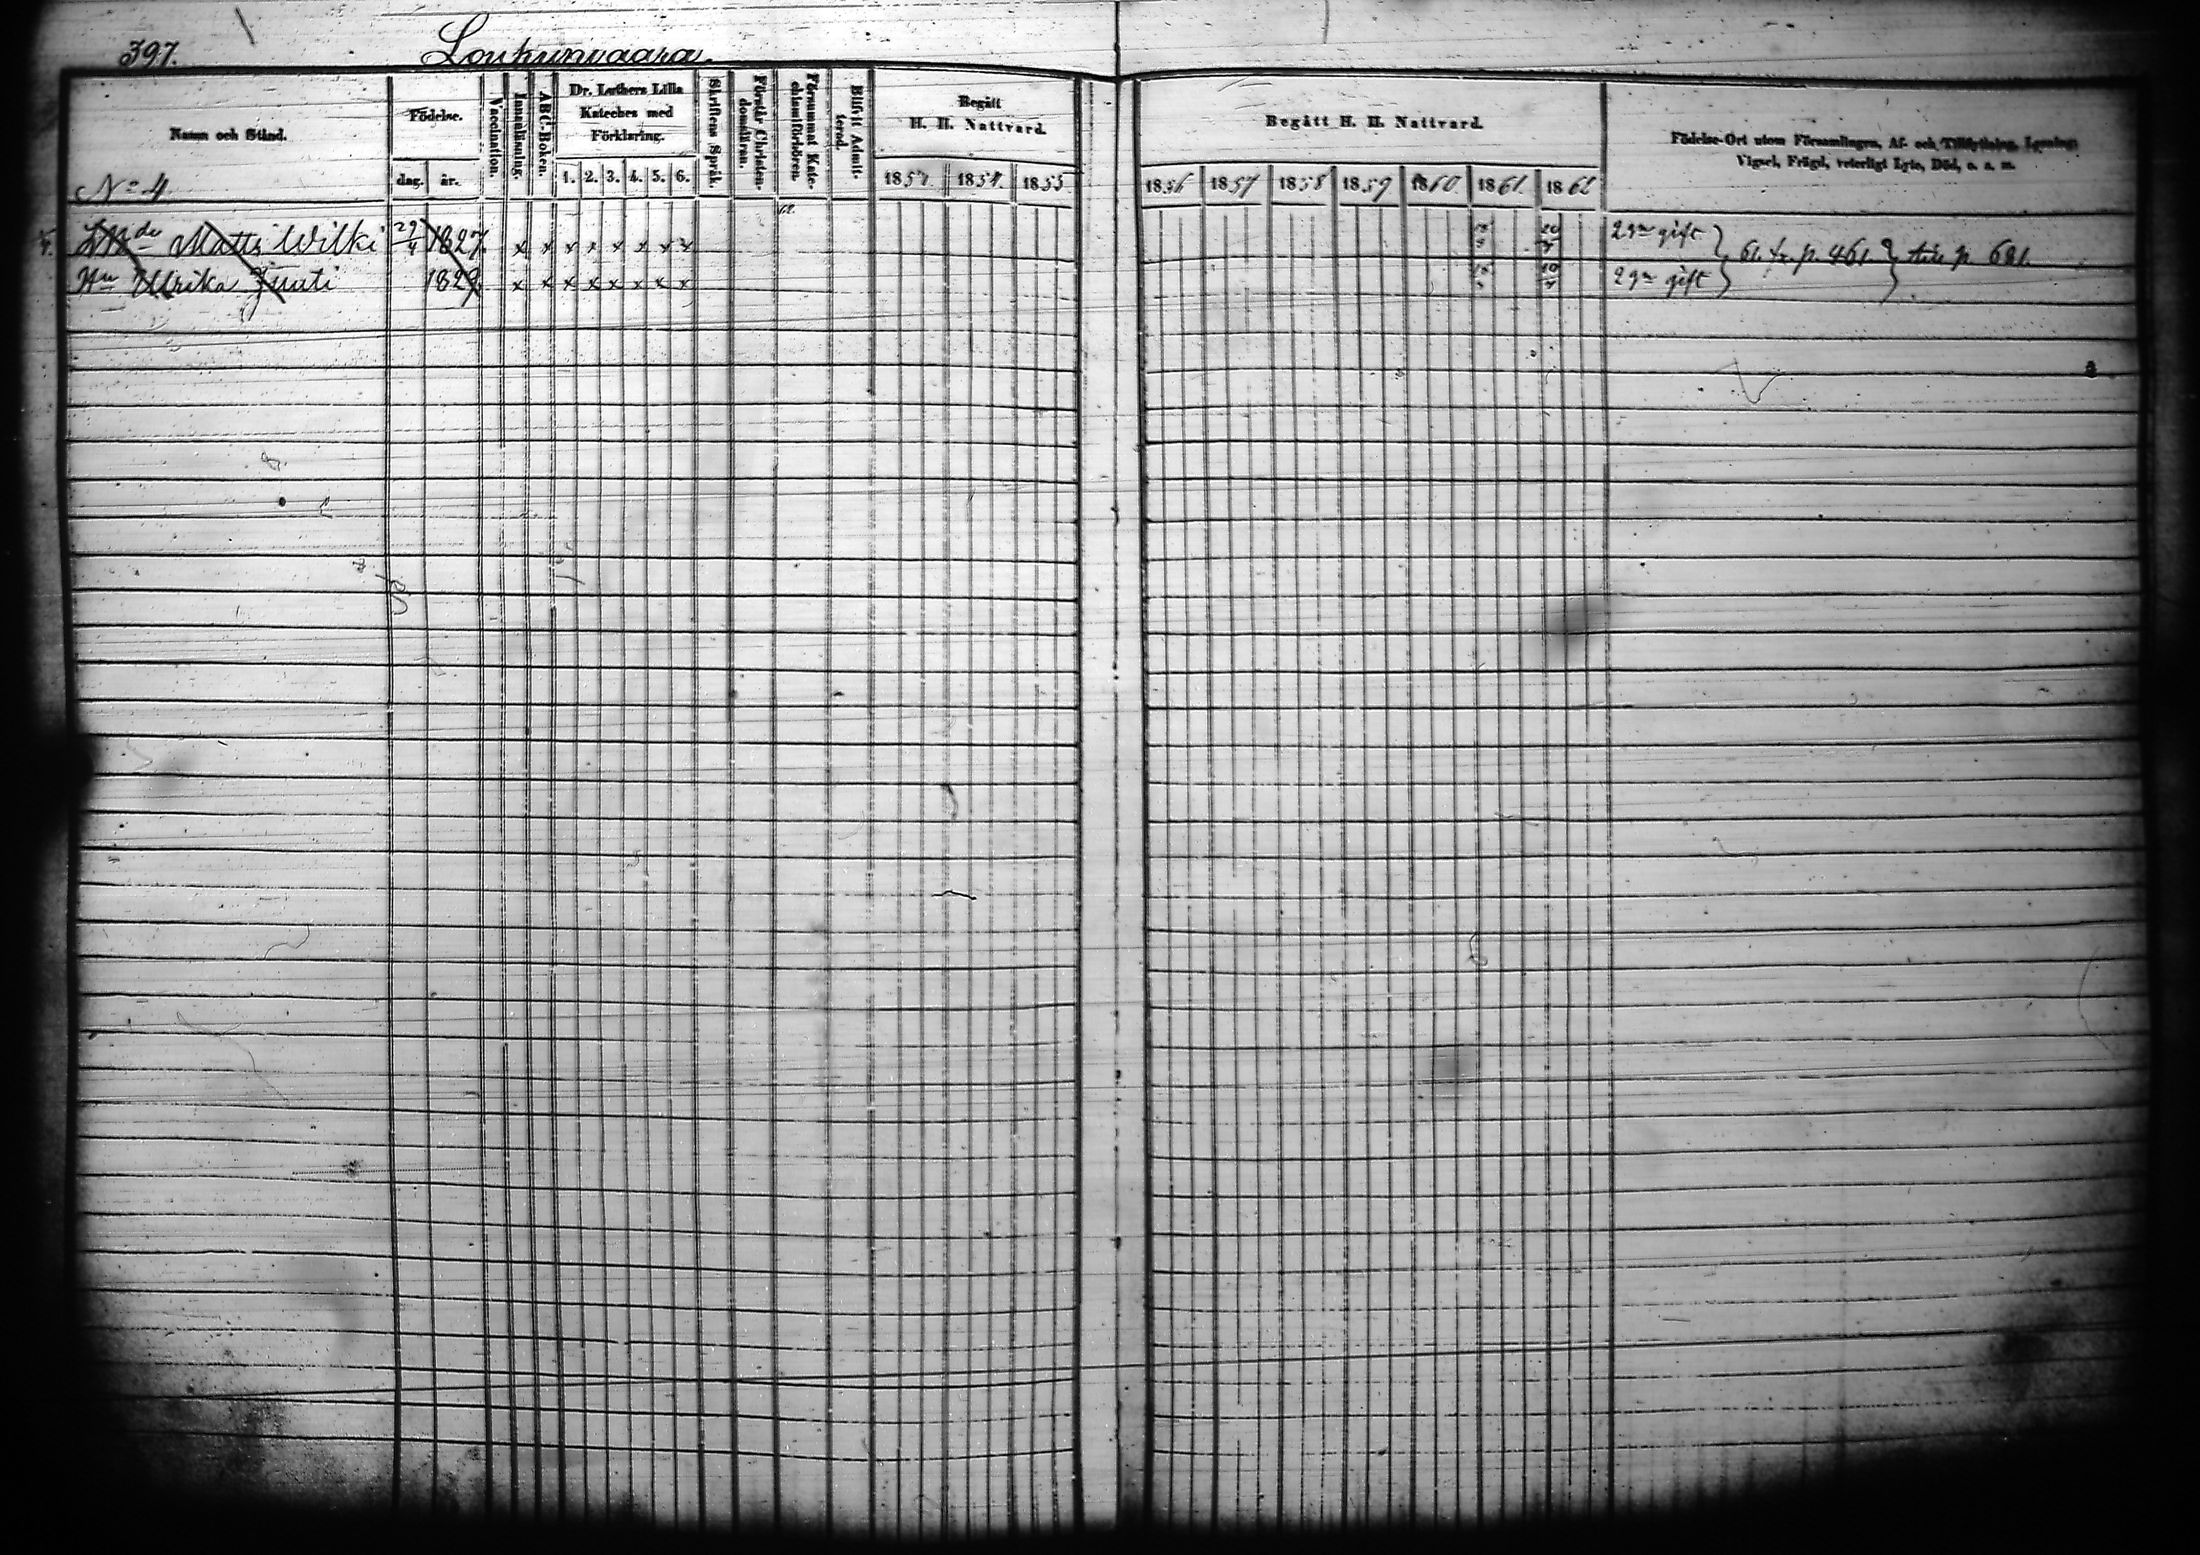 397. Loukunvaara.
Namn och Stånd.
Födelse.
dag. år.
Vaccination.
Innanläsning.
ABC-Boken.
Dr. Luthers Lilla Kateches med Förklaring.
1. 2. 3. 4. 5. 6.
Skriftens Språk.
Förstår Christendomsläran.
Försummat Katechismiförhören.
Blifvit Admitterad.
Begått
H. H. Nattvard.
1853 1854. 1855
Begått H. H. Nattvard.
1856 1857 1858 1859 1860 1861 1862
Födelse-Ort utom Församlingen, Af- och Tillflyttning, Lysning,
Vigsel, Frägd, veterligt Lyte, Död, o. s. m.
No 4
62.
Matts Wilki 29/4 1827. x x x x x x x x 2 gm gift
Hu Ulrika Juuti 1829. x x x x x x x x 2 gm gift
61. fr. p. 461. till p. 681.